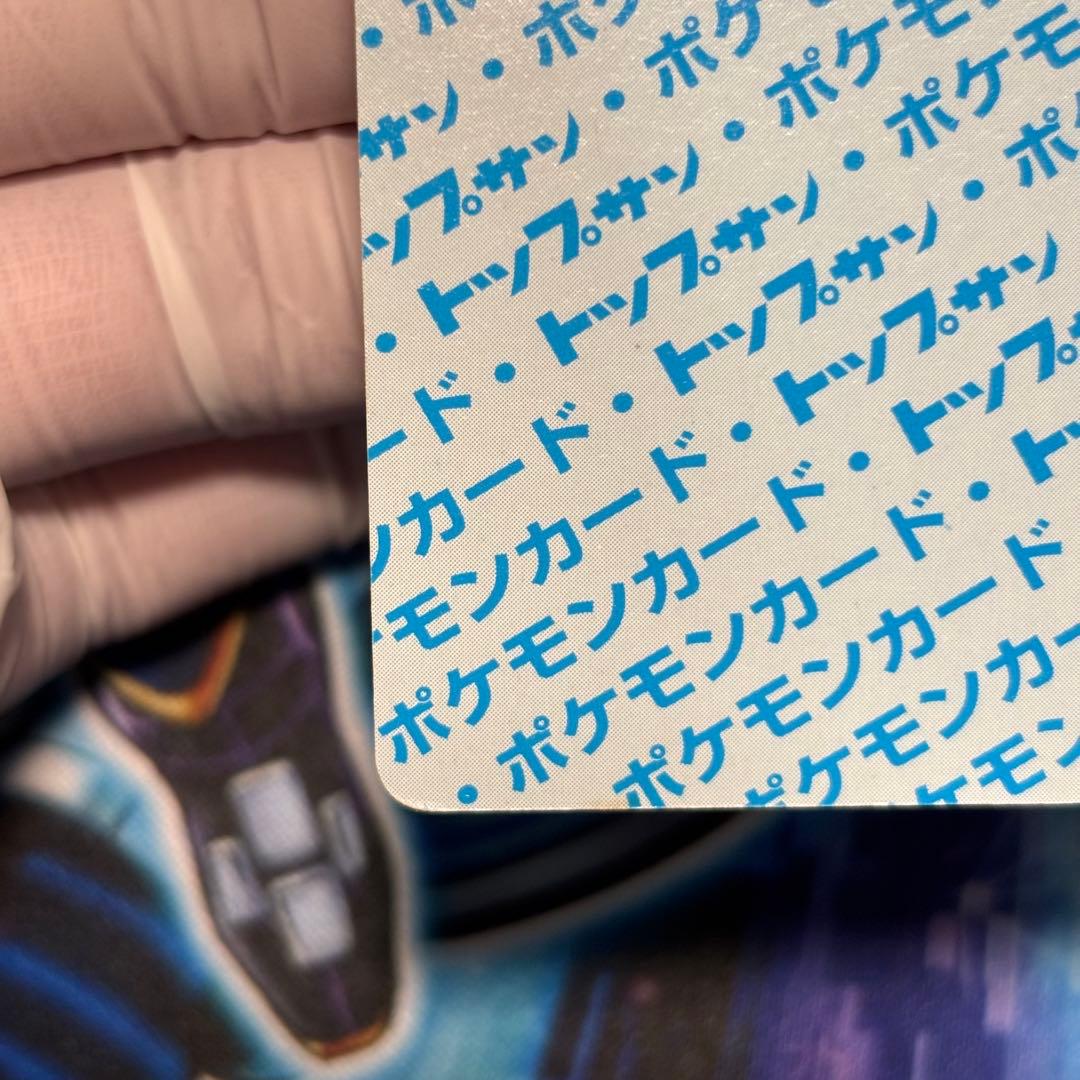 ・ポ
サン・ポケ
ップサン・ポケ
・トップサン・ポケモ
ード・トップサン・ポケモ
ンカード・トップサン・ポ
モンカード・トップサン
ポケモンカード・トップ
・ポケモンカード・ト
ポケモンカード
ポケモンカー
ケモン